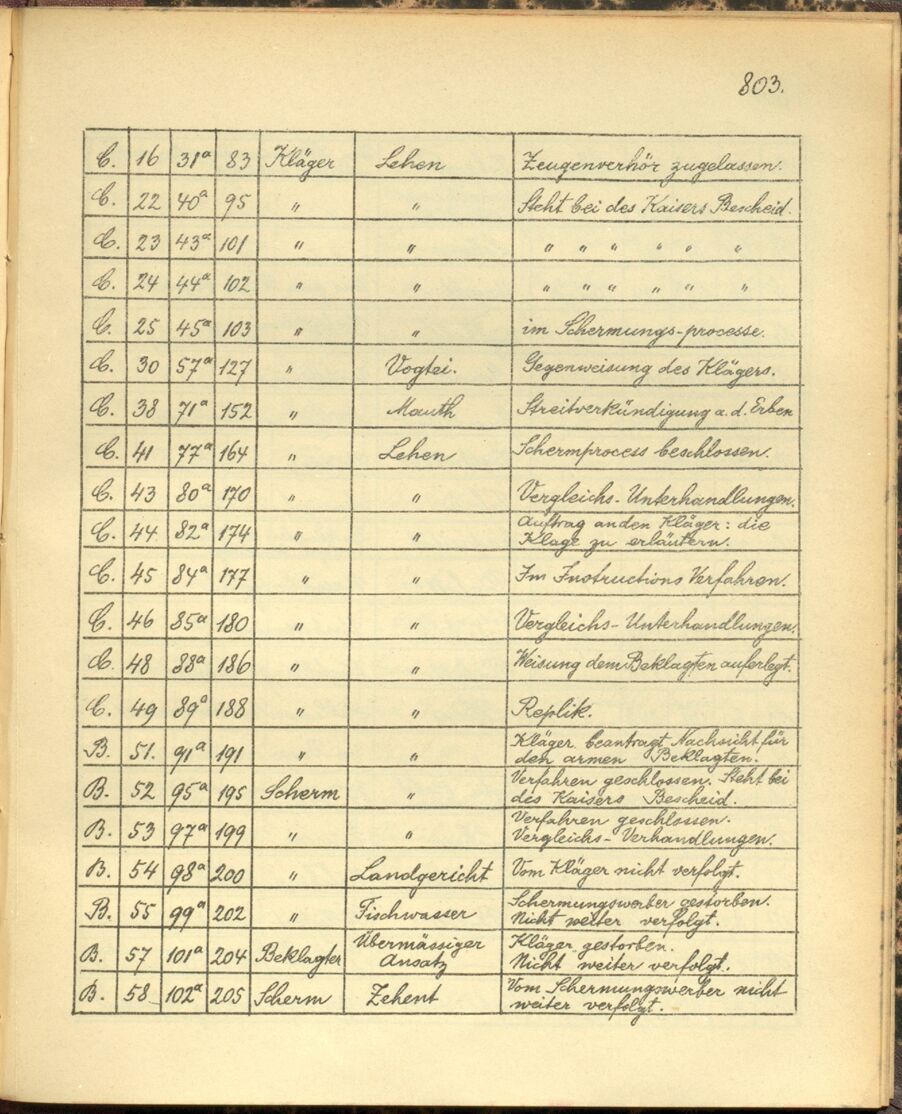 803.
C. 16 31a 83 Kläger Lehen Zeugenverhör zugelassen.
C. 22 40a 95 " " Steht bei des Kaisers Bescheid.
C. 23 43a 101 " " " " " " " "
C. 24 44a 102 " " " " " " " "
C. 25 45a 103 " " im Schermungs-processe.
C. 30 57a 127 " Vogtei. Gegenweisung des Klägers.
C. 38 71a 152 " Mauth Streitverkündigung a. d. Erben
C. 41 77a 164 " Lehen Schermprocess beschlossen.
C. 43 80a 170 " " Vergleichs-Unterhandlungen.
C. 44 82a 174 " " Auftrag an den Kläger: die
Klage zu erläutern.
C. 45 84a 177 " " Im Instructions Verfahren.
C. 46 85a 180 " " Vergleichs-Unterhandlungen.
C. 48 88a 186 " " Weisung dem Beklagten auferlegt.
C. 49 89a 188 " " Replik.
B. 51. 91a 191 " " Kläger beantragt Nachsicht für
den armen Beklagten.
B. 52 95a 195 Scherm " Verfahren geschlossen. Steht bei
des Kaisers Bescheid.
B. 53 97a 199 " " Verfahren geschlossen.
Vergleichs-Verhandlungen.
B. 54 98a 200 " Landgericht Vom Kläger nicht verfolgt.
B. 55 99a 202 " Fischwasser Schermungswerber gestorben.
Nicht weiter verfolgt.
B. 57 101a 204 Beklagter Übermässiger Ansatz Kläger gestorben.
Nicht weiter verfolgt.
B. 58 102a 205 Scherm Zehent Vom Schermungswerber nicht
weiter verfolgt.